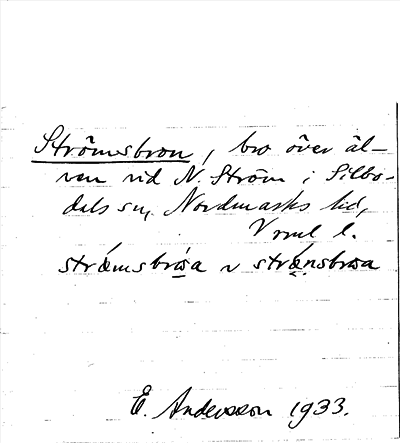 Strömsbron, bro över äl-
ven vid N. Ström i Silbo-
dals sn, Nordmarks hd,
Vrml l.
strömsbrơa ~
E. Andersson 1933.